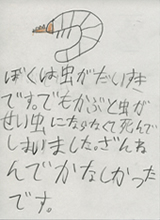 ぼくは虫がだいすき
です。でもかぶと虫が
せい虫になれなくて死んで
しまいました。ざんね
んでかなしかった
です。